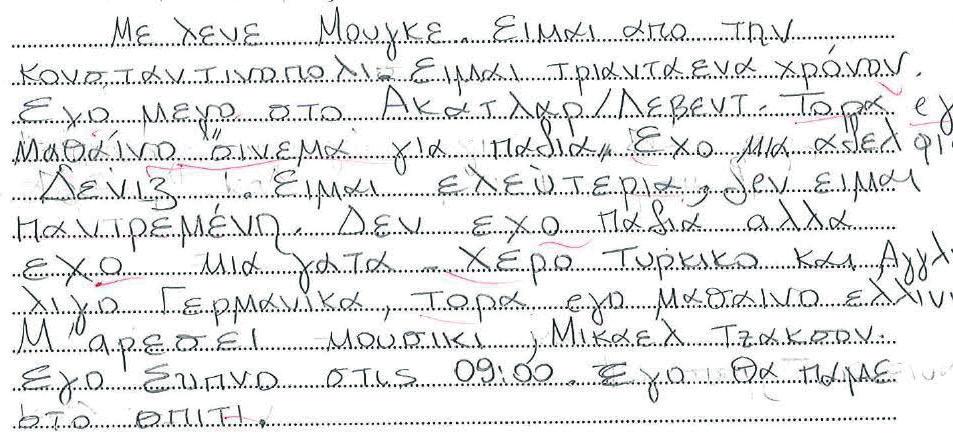 Με λενε Μουγκε. Ειμαι απο την
κονσταντινοπολι. Ειμαι τριανταενα χρόνον.
Εγο μεγο στο Ακατλαρ/Λεβεντ. Τορα εγ
Μαθαίνο "σινεμα για παδια,, Εχο μια αδελφι
Δενιζ !. Ειμαι ελεύτερια, δεν ειμαι
παντρεμένη. Δεν εχο παδια αλλα
εχο μια γατα - Χερο Τυρκικο και Αγγλ
λιγο Γερμανικα, τορα εγο μαθαινο ελλινι
Μ'αρεσει μουσικι, Μικαελ Τζακσον.
Εγο ξυπνο στις 09:00. Εγο θα παμε
στο σπιτι.